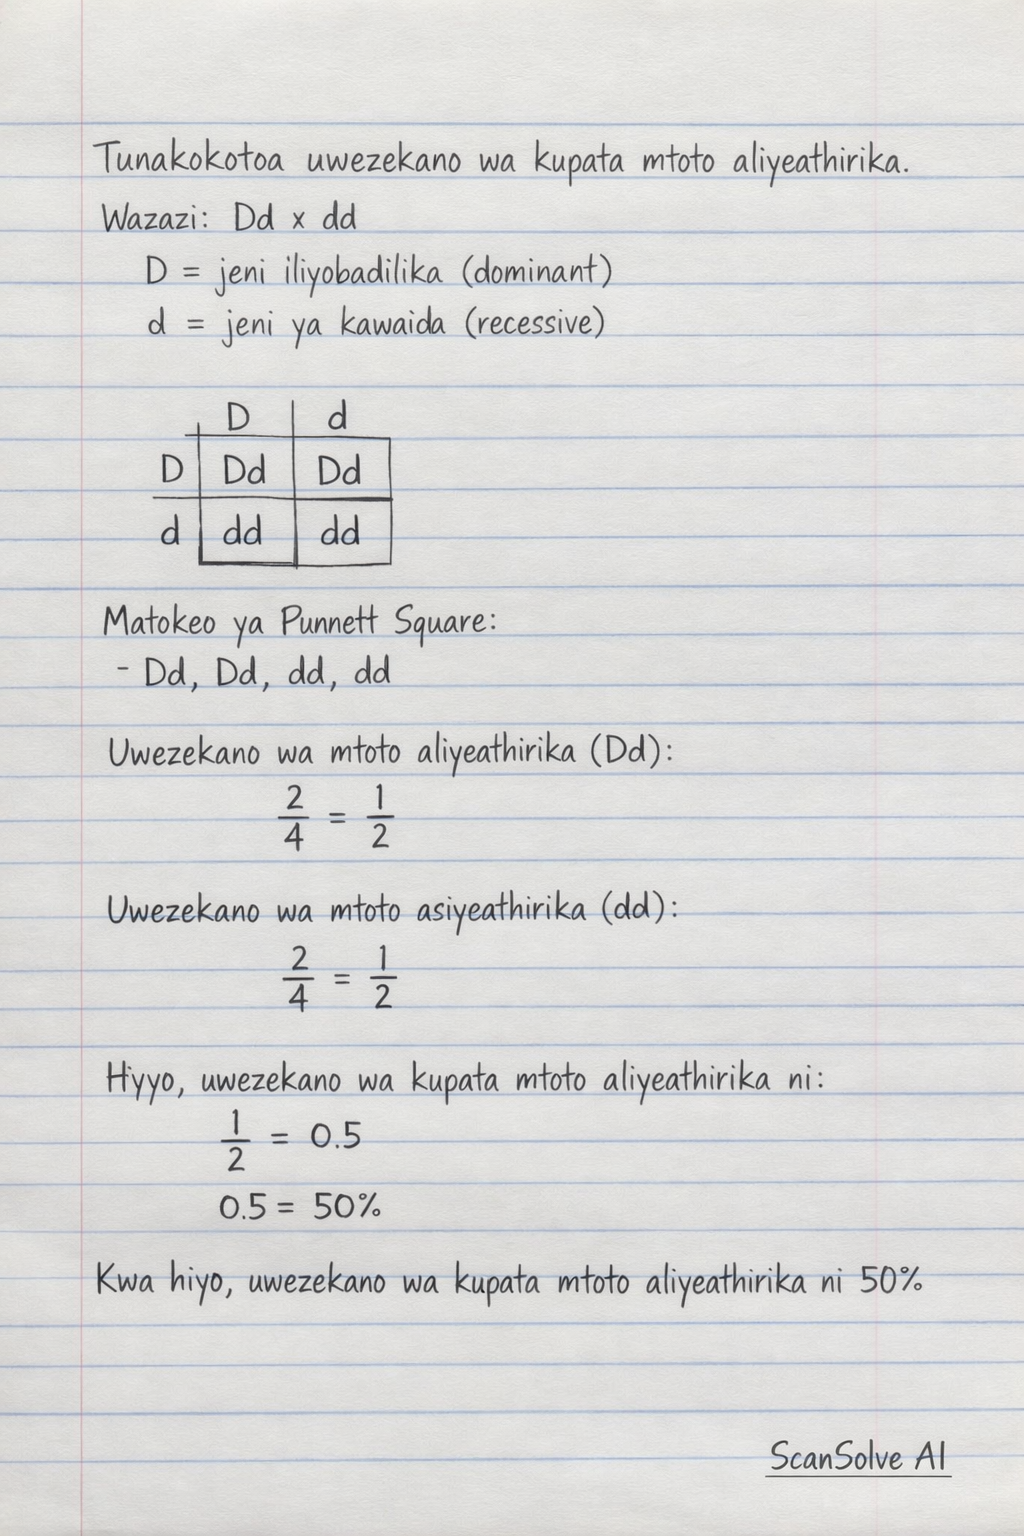 Tunakokotoa uwezekano wa kupata mtoto aliyeathirika.
Wazazi: Dd x dd
D = jeni iliyobadilika (dominant)
d = jeni ya kawaida (recessive)
D d
D Dd Dd
d dd dd
Matokeo ya Punnett Square:
- Dd, Dd, dd, dd
Uwezekano wa mtoto aliyeathirika (Dd):
2/4 = 1/2
Uwezekano wa mtoto asiyeathirika (dd):
2/4 = 1/2
Hiyyo, uwezekano wa kupata mtoto aliyeathirika ni:
1/2 = 0.5
0.5 = 50%
Kwa hiyo, uwezekano wa kupata mtoto aliyeathirika ni 50%
ScanSolve AI